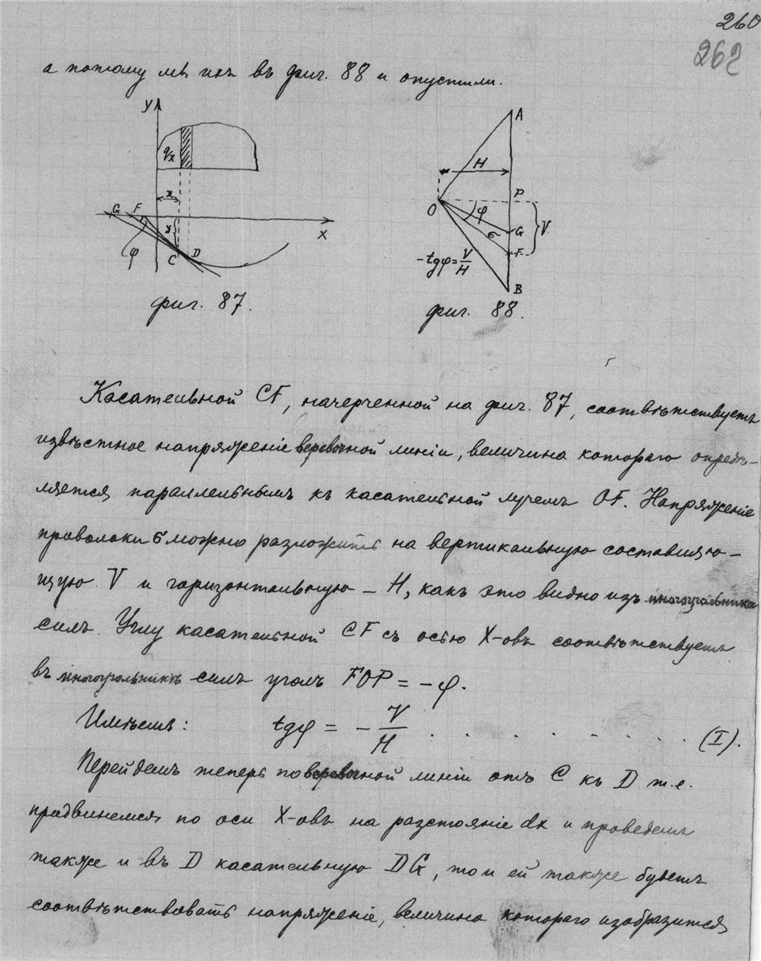 260
262
а потому мы ихъ въ фиг. 88 и опустили.
y
qx
x
G F
y
X
φ
C D
фиг. 87.
A
H
P
O
φ
G
V
σ
F
-tgφ = V/H
B
фиг. 88.
Касательной CF, начерченной на фиг. 87, соотвѣтствуетъ
извѣстное напряженіе веревочной линіи, величина котораго опредѣ-
ляется параллельнымъ къ касательной лучемъ OF. Напряженіе
проволоки σ можно разложить на вертикальную составляю-
щую V и горизонтальную – H, какъ это видно изъ многоугольника
силъ. Углу касательной CF съ осью X-овъ соотвѣтствуетъ
въ многоугольникѣ силъ уголъ FOP = -φ.
Имѣемъ: tgφ = - V/H . . . . . . . . . . (I).
Перейдемъ теперь по веревочной линіи отъ C къ D т.е.
продвинемся по оси X-овъ на разстояніе dx и проведемъ
также и въ D касательную DG, то и ей также будетъ
соотвѣтствовать напряженіе, величина котораго изобразится